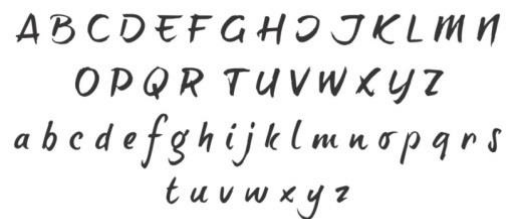 A B C D E F G H Ɔ J K L M N
O P Q R T U V W X Y Z
a b c d e f g h i j k l m n o p q r s
t u v w x y z